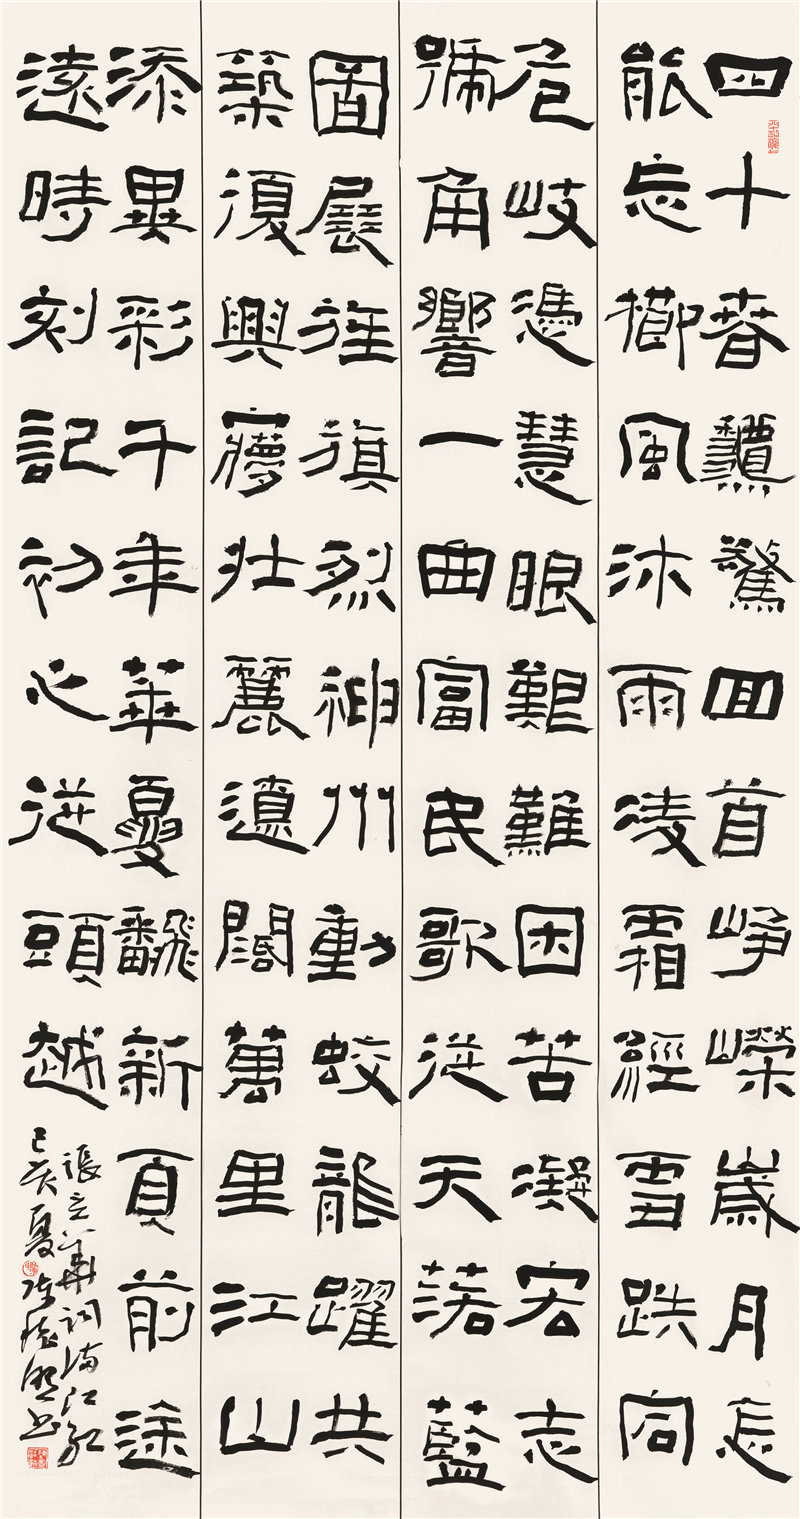 四十春龝驚回首崢嶸歲月怎
能忘櫛風沐雨凌霜經雪跌宕
危岐憑慧眼艱難困苦凝宏志
號角響一曲富民歌從天落藍
圖展旌旗烈神州動蛟龍躍共
築復興夢壯麗遼闊萬里江山
添異彩千年華夏翻新頁前途
遠時刻記初心從頭越
張立華詞滿江紅
己亥夏陳德書